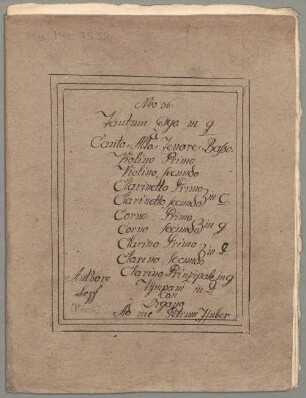 Mus. Hdr. 7532
Nro 26.
Tantum Ergo in g
Canto, Alto, Tenore, Basso.
Violino Primo
Violino secundo
Clarinetto Primo
Clarinetto secundo in C
Corno Primo
Corno secundo in g
Clarino Primo
Clarino secundo in g
Clarino Prinzipale in g
Tÿmpani in g
con
Organo
Authore
Ab me Petrum Huber